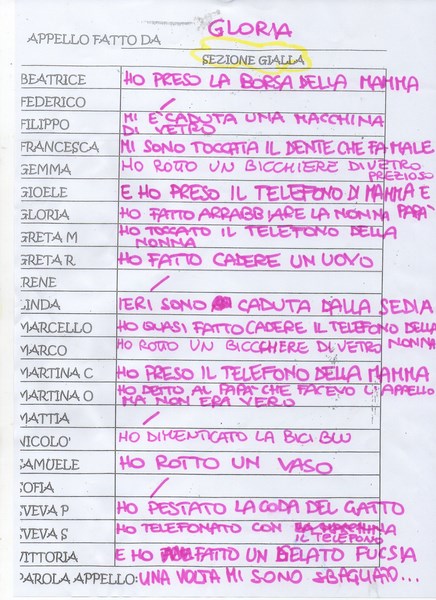 APPELLO FATTO DA GLORIA
SEZIONE GIALLA
BEATRICE HO PRESO LA BORSA DELLA MAMMA
FEDERICO /
FILIPPO MI È CADUTA UNA MACCHINA
DI VETRO
FRANCESCA MI SONO TOCCATA IL DENTE CHE FA MALE
GEMMA HO ROTTO UN BICCHIERE DI VETRO
PREZIOSO
GIOELE E HO PRESO IL TELEFONO DI MAMMA E
PAPÀ
GLORIA HO FATTO ARRABBIARE LA NONNA
GRETA M HO TOCCATO IL TELEFONO DELLA
NONNA
GRETA R HO FATTO CADERE UN UOVO
IRENE /
LINDA IERI SONO CADUTA DALLA SEDIA
MARCELLO HO QUASI FATTO CADERE IL TELEFONO DELLA
NONNA
MARCO HO ROTTO UN BICCHIERE DI VETRO
MARTINA C HO PRESO IL TELEFONO DELLA MAMMA
MARTINA O HO DETTO AL PAPÀ CHE FACEVO L'APPELLO
MA NON ERA VERO
MATTIA /
NICOLO' HO DIMENTICATO LA BICI BLU
SAMUELE HO ROTTO UN VASO
SOFIA /
SVEVA P HO PESTATO LA CODA DEL GATTO
SVEVA S HO TELEFONATO CON LA MACCHINA
IL TELEFONO
VITTORIA E HO FATTO UN GELATO FUCSIA
PAROLA APPELLO: UNA VOLTA MI SONO SBAGLIATO...